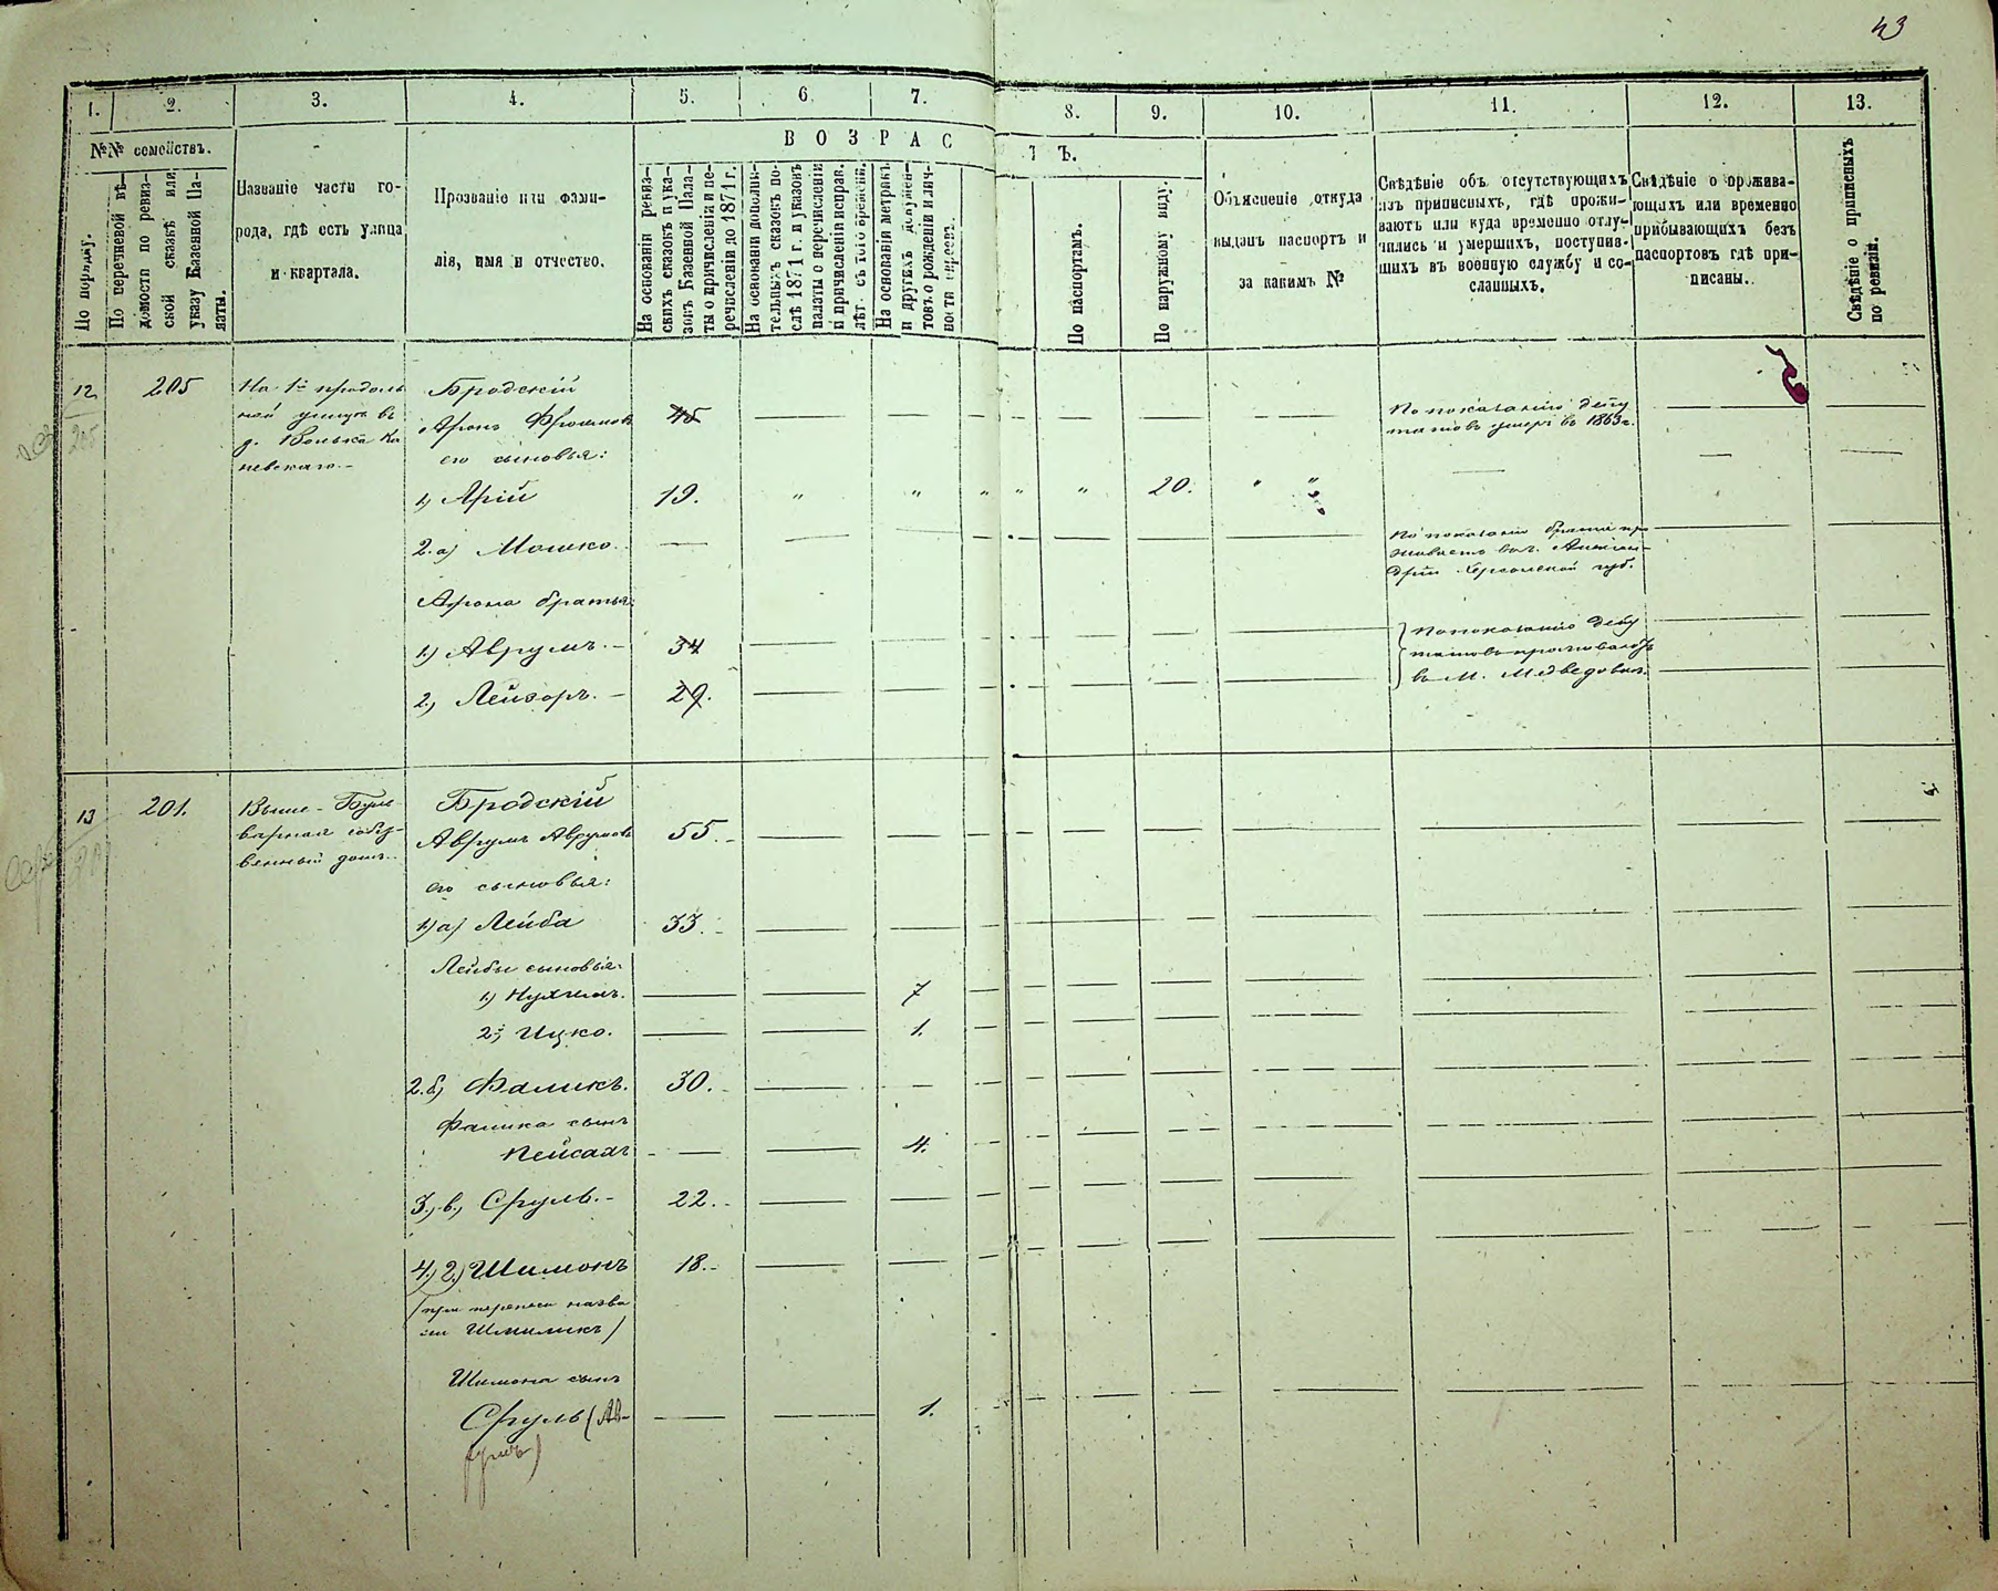 43
1. 2. 3. 4. 5. 6. 7. 8. 9. 10. 11. 12. 13.
№№ семействъ.
По порядку.
По перечневой вѣ-
домости по ревиз-
ской сказкѣ или
указу Казенной Па-
латы.
Названіе части го-
рода, гдѣ есть улица
и квартала.
Прозваніе или фами-
лія, имя и отчество.
ВОЗРАСТЪ.
На основаніи ревиз-
скихъ сказокъ и ука-
зовъ Казенной Пала-
ты о причисленіи и пе-
речисленіи до 1871 г.
На основаніи дополни-
тельныхъ сказокъ по-
слѣ 1871 г. и указовъ
палаты о перечисленіи
и причисленіи исправ.
лѣт. съ того времени.
На основаніи метрикъ
и другихъ докумен-
товъ о рожденіи и лич-
ности евреевъ.
По паспортамъ.
По наружному виду.
Объясненіе откуда
выданъ паспортъ и
за какимъ №
Свѣдѣніе объ отсутствующихъ
изъ приписныхъ, гдѣ прожи-
ваютъ или куда временно отлу-
чились и умершихъ, поступив-
шихъ въ военную службу и со-
сланныхъ.
Свѣдѣніе о прожива-
ющихъ или временно
прибывающихъ безъ
паспортовъ гдѣ при-
писаны.
Свѣдѣніе о приписныхъ
по ревизіи.
12
205
205
На 1й продоль
ной улицѣ въ
д. Ка
невскаго.
Бродскій
Аронъ
45
По показанію депу
татовъ умеръ въ 1863 г.
его сыновья:
1) Арій 19. " " " " " 20. " "
2.а) Мошко.
По показанію братьи пр
оживаетъ въ г. Алексан
дріи Херсонской губ.
Арона братья:
1) Аврумъ. 34
2.) Лейзоръ. 29.
По показанію депу
татовъ проживаютъ
въ М. Медведовкѣ.
13
201.
201
Выше-Буль
варная собст
венный домъ.
Бродскій
Аврумъ Аврумовъ 55.
его сыновья:
1) а) Лейба 33.
Лейбы сыновья:
1) Нухимъ. 7
2) Ицко. 1.
2.б) Фаликъ. 30.
Фалика сынъ
Пейсахъ 4.
3.) в.) Сруль. 22.
4.) г.) Шимонъ 18.
(при переписи назва
ли Шмиликъ)
Шимона сынъ
Сруль (Ав- 1.
румъ)